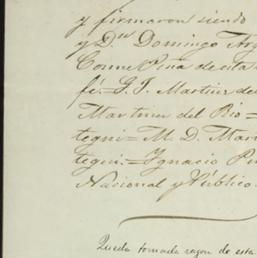 y firmaron siendo
y Dn Domingo
Peña de esta
fé.=G. J. Martinez del
Martinez del Rio=
tegui=M. D. Mar
tegui.=Ygnacio Pe
Nacional y Público
Queda tomada razon de esta